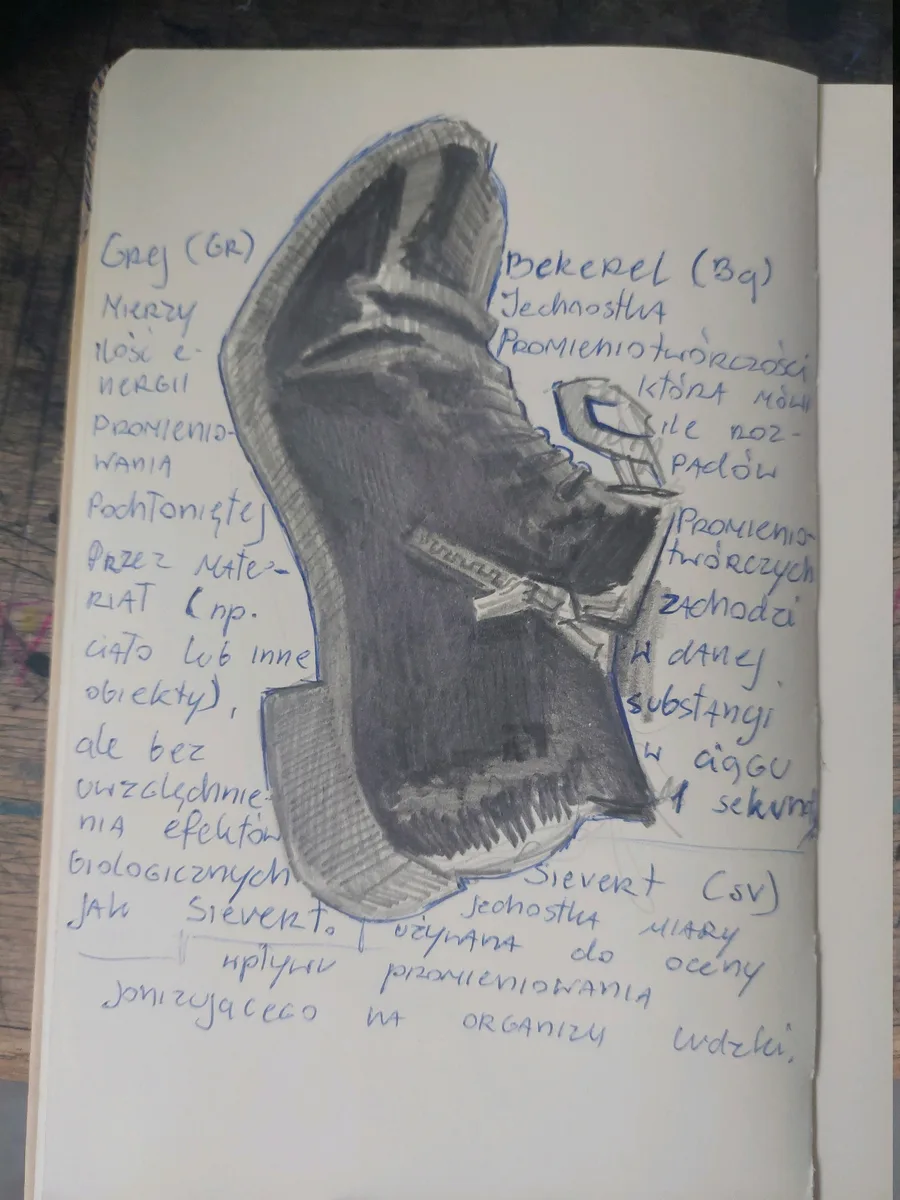 Grej (GR)
MIERZY
ilość e-
NERGII
PROMIENIO-
WANIA
Pochłoniętej
PRZEZ MATE-
RIAŁ (np.
CIAŁO lub inne
obiekty),
ale bez
uwzGlęchnie-
NIA efektów
biologicznych
JAK Sievert.
Bekerel (Bq)
Jednostka
PROMIENIOtwórczości
która mówi
ile roz-
PAdów
PROMIENIO-
twórczych
ZAchodzi
w dANej
substAncji
w ciągu
1 sekundy
Sievert (SV)
jednostka MIARY
używana do oceny
wpływu promieniowania
Jonizującego NA ORGANIZM ludzki.